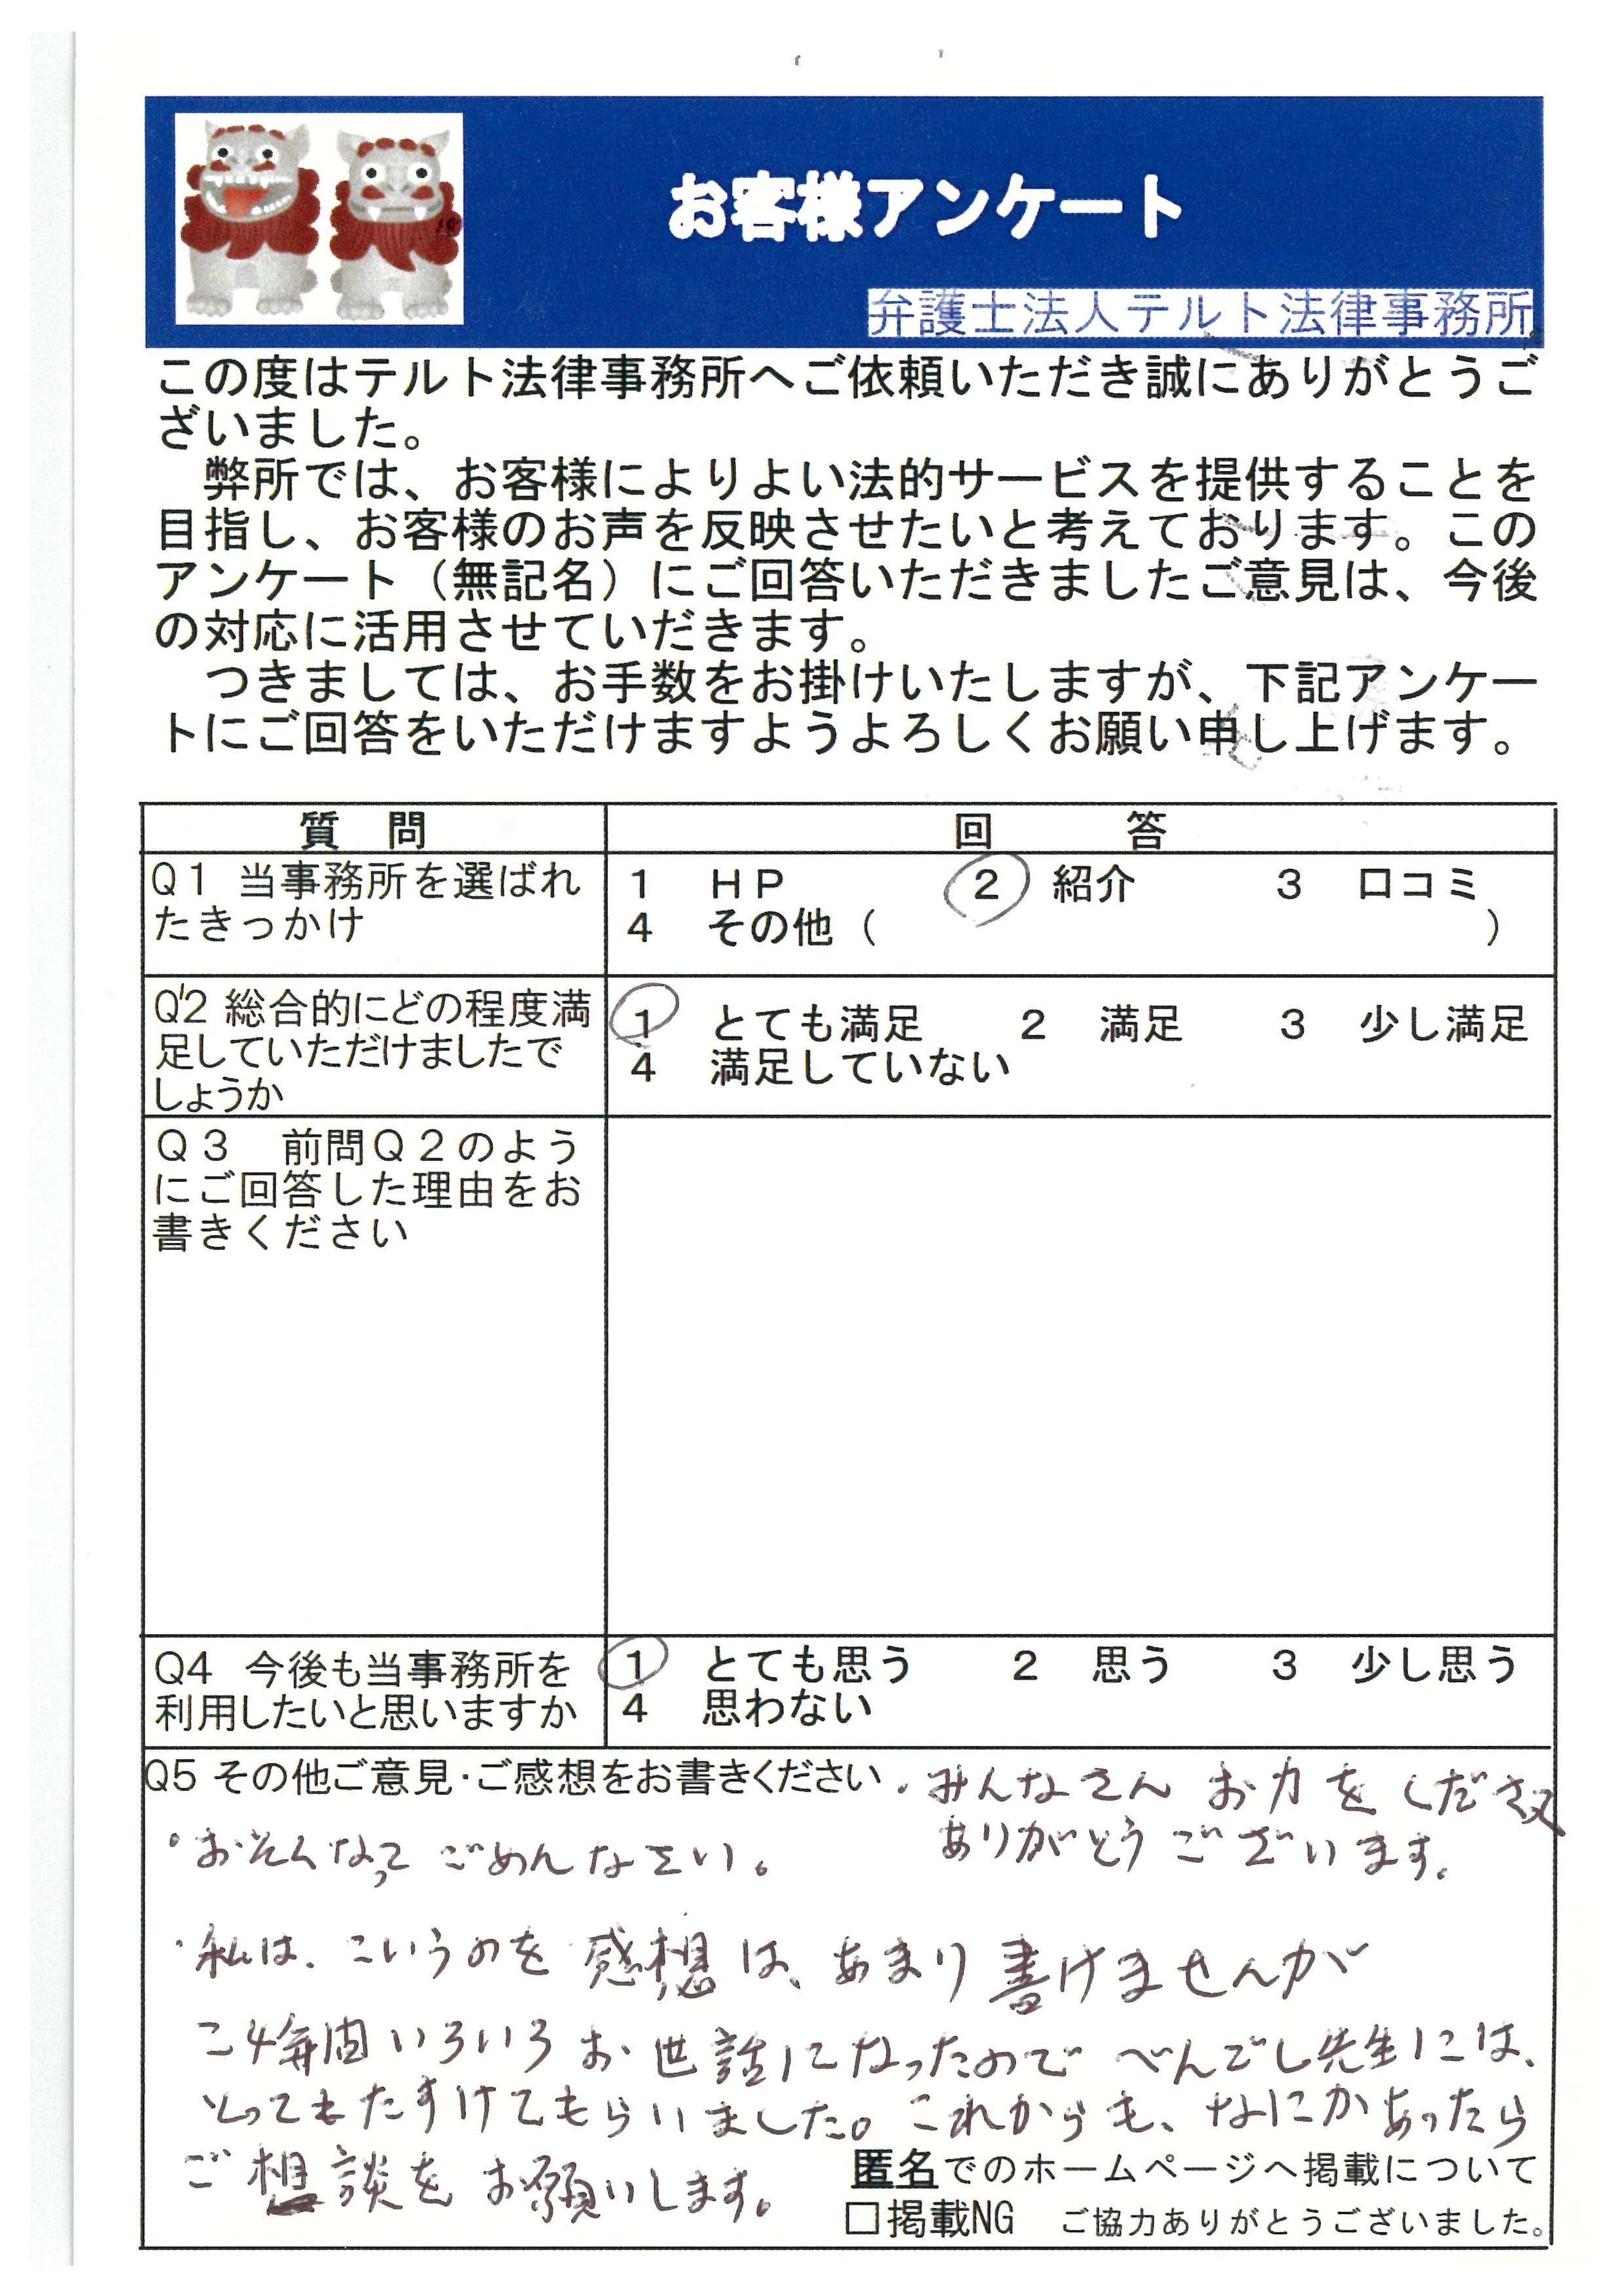 お客様アンケート
弁護士法人テルト法律事務所
この度はテルト法律事務所へご依頼いただき誠にありがとうご
ざいました。
弊所では、お客様によりよい法的サービスを提供することを
目指し、お客様のお声を反映させたいと考えております。この
アンケート（無記名）にご回答いただきましたご意見は、今後
の対応に活用させていだきます。
つきましては、お手数をお掛けいたしますが、下記アンケー
トにご回答をいただけますようよろしくお願い申し上げます。
質 問 回 答
Q1 当事務所を選ばれ
たきっかけ
1 HP 2 紹介 3 口コミ
4 その他（ ）
Q2 総合的にどの程度満
足していただけましたで
しょうか
1 とても満足 2 満足 3 少し満足
4 満足していない
Q3 前問Q2のよう
にご回答した理由をお
書きください
Q4 今後も当事務所を
利用したいと思いますか
1 とても思う 2 思う 3 少し思う
4 思わない
Q5 その他ご意見・ご感想をお書きください
・みんなさん お力を くださ
ありがとうございます。
・おそくなって ごめんなさい。
・私は、こういうのを 感想は、あまり 書けませんが
こ4年間いろいろ お世話になったので べんごし先生には、
とってもたすけてもらいました。これからも、なにかあったら
ご想談を お願いします。
匿名でのホームページへ掲載について
□掲載NG ご協力ありがとうございました。